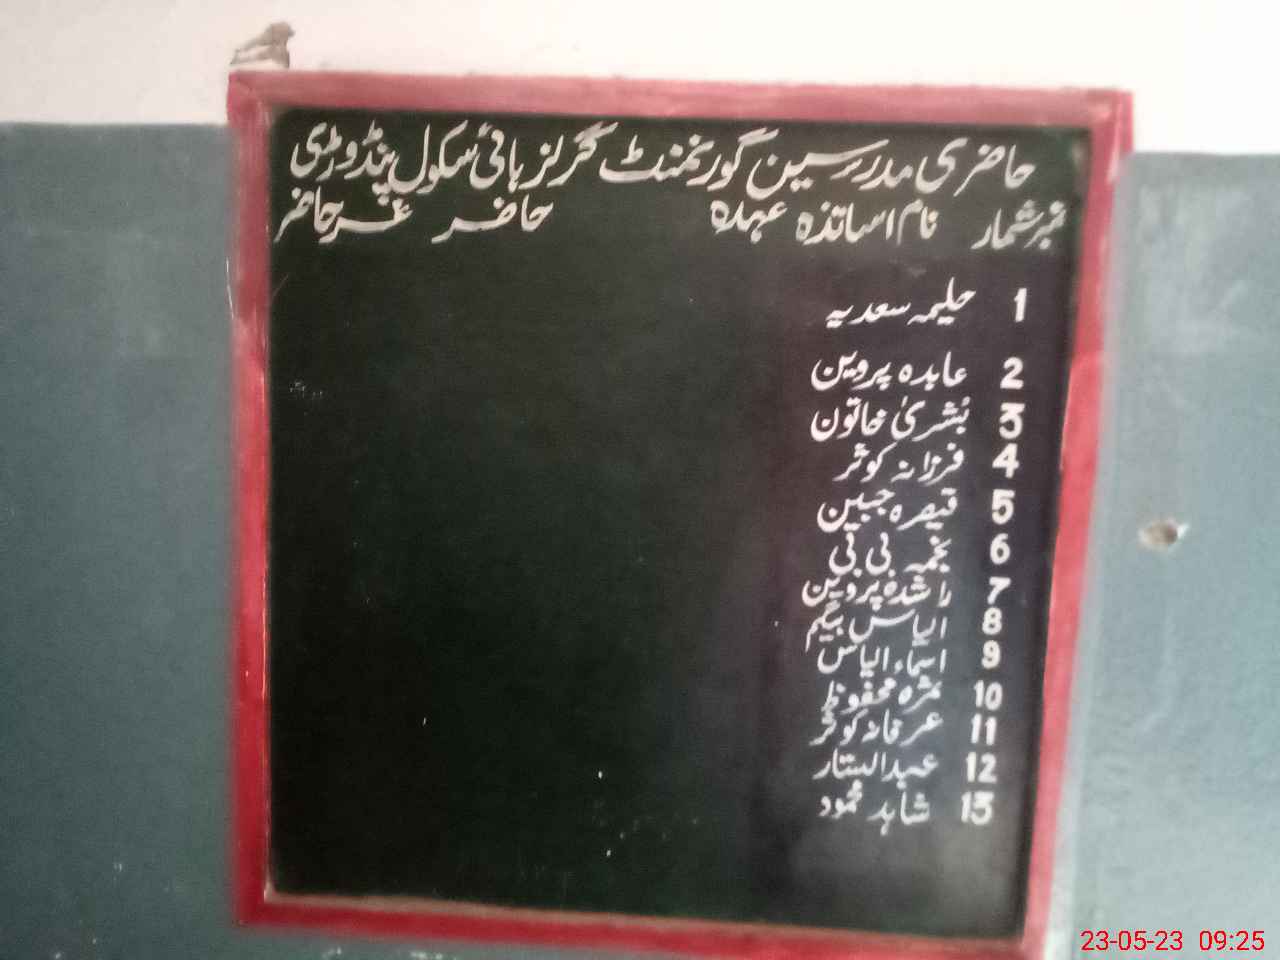 حاضری مدرسین گورنمنٹ گرلز ہائی سکول پنڈوڑی
نمبر شمار نام اساتذہ عہدہ حاضر غیر حاضر
1 حلیمہ سعدیہ
2 عابدہ پروین
3 بُشریٰ خاتون
4 فرزانہ کوثر
5 قیصرہ جبین
6 نجمہ بی بی
7 راشدہ پروین
8 الیاس بیگم
9 اسماء الیاس
10 ثمرہ محفوظ
11 عرفانہ کوثر
12 عبدالستار
13 شاہد محمود
23-05-23 09:25